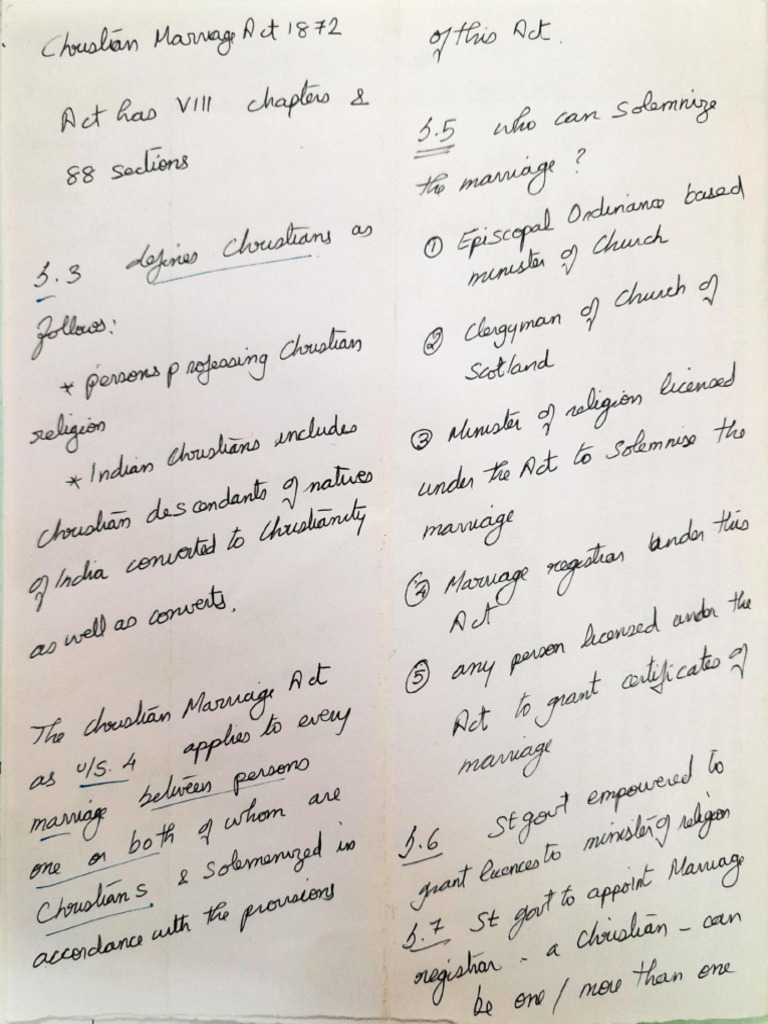 Christian Marriage Act 1872
Act has VIII chapters &
88 sections
S.3 defines Christians as
follows:
* persons professing Christian
religion
* Indian Christians includes
Christian descendants of natives
of India converted to Christianity
as well as converts.
The Christian Marriage Act
as u/s. 4 applies to every
marriage between persons
one or both of whom are
Christians & Solemenized in
accordance with the provisions
of this Act.
S.5 who can solemnize
the marriage?
① Episcopal Ordiniance based
minister of Church
② Clergyman of Church of
Scotland
③ Minister of religion licensed
under the Act to Solemnise the
marriage
④ Marriage registrar under this
Act
⑤ any person licensed under the
Act to grant certificates of
marriage
S.6 St govt empowered to
grant licences to minister of religion
S.7 St govt to appoint Marriage
registrar - a Christian - can
be one / more than one